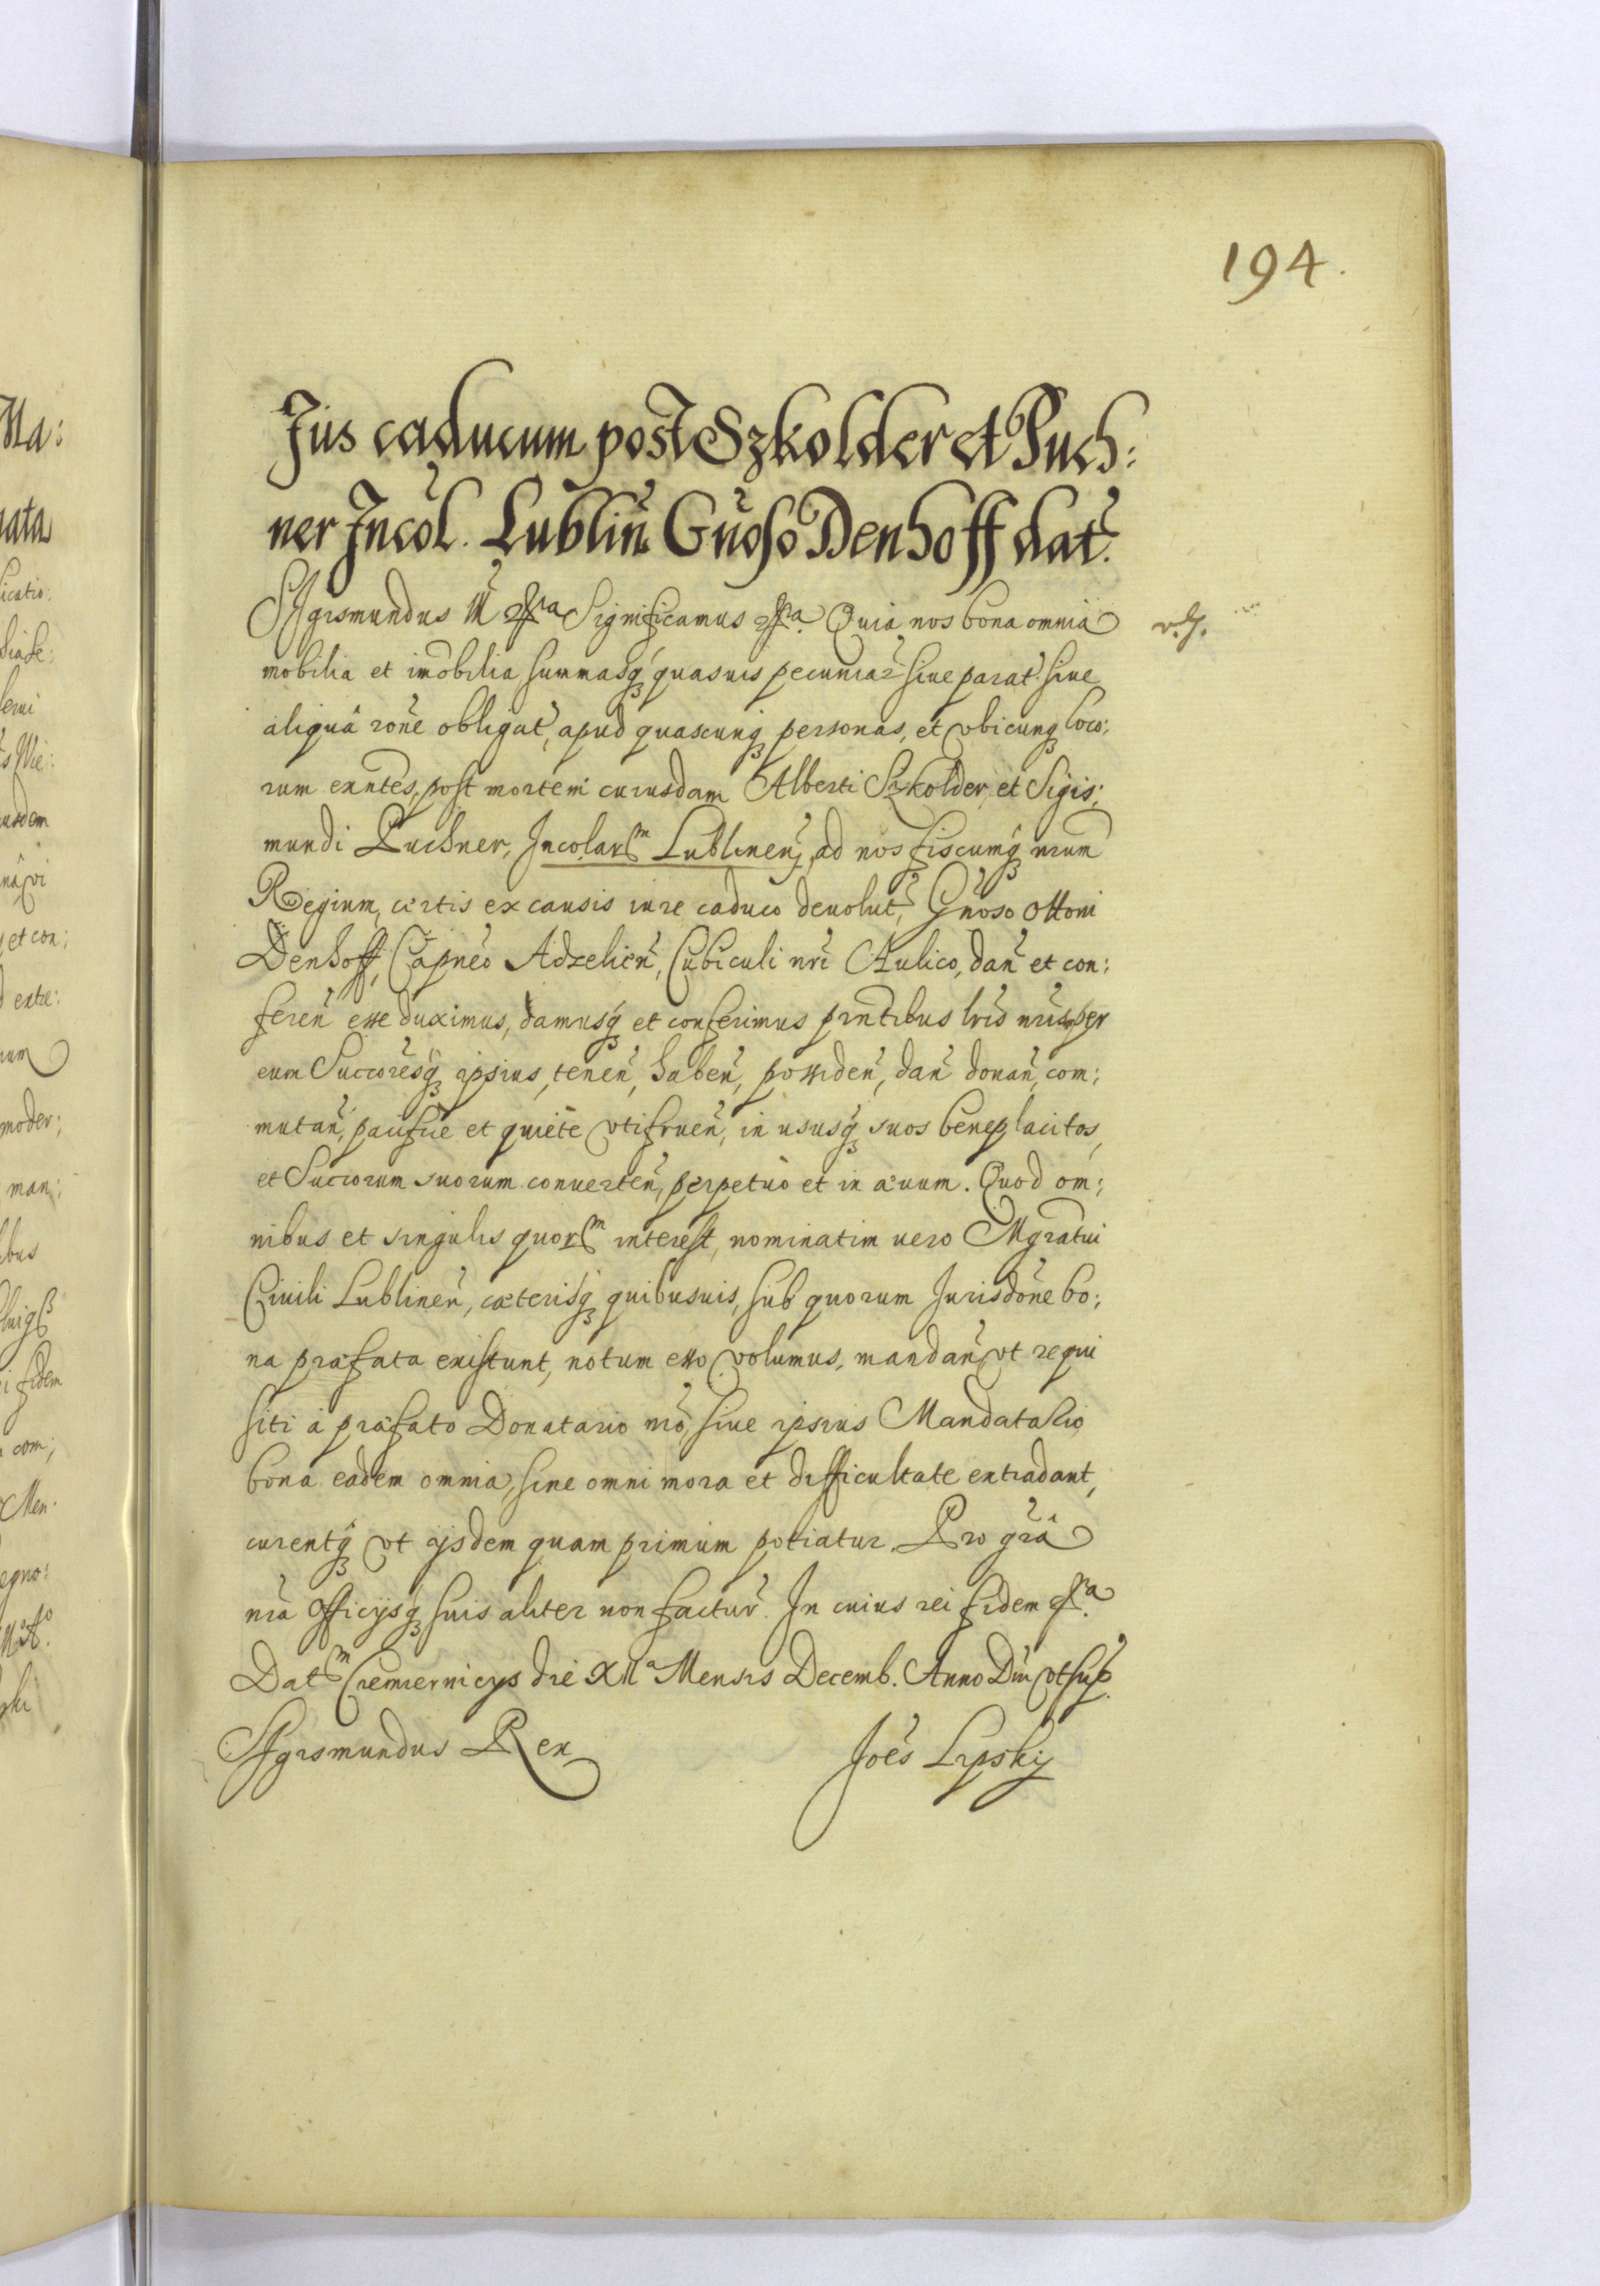 194.
Jus caducum post Szkolder et Puch:
ner Incol. Lublin Gnoso Denhoff dat.
Sigismundus III etc Significamus etc. Quia nos bona omnia
mobilia et imobilia summasq quasuis pecuniar siue parat. siue
aliquâ rone obligat, apud quascunq personas, et vbicunq loco:
rum exntes, post mortem cuiusdam Alberti Szkolder, et Sigis:
mundi Puchner, Incolarm Lublinen, ad nos fiscumq nrum
Regium, certis ex causis iure caduco deuolut, Gnoso Ottoni
Denhoff, Capneo Adzelien, Cubiculi nri Aulico, dan et con:
feren esse duximus, damusq et conferimus pntibus lris nris per
eum Succoresq ipsius, tenen, haben, possiden, dan donan, com:
mutan, pacifice et quiete vtifruen, in ususq suos beneplacitos,
et Succorum suorum conuerten, perpetuo et in æuum. Quod om:
nibus et singulis quorm interest, nominatim uero Mgratui
Ciuili Lublinen, cæterisq quibusuis, sub quorum Jurisdone bo:
na præfata existunt, notum esse volumus, mandan vt requi
siti à præfato Donatario nro, siue ipsius Mandatario
bona eadem omnia, sine omni mora et difficultate extradant,
curentq vt ijsdem quam primum potiatur Pro grâ
nra officijsq suis aliter non factur. In cuius rei fidem etc.
Datm Cremiernicys die XIIa Mensis Decemb. Anno Dni vt sup.
Sigismundus Rex Joes Lipsky